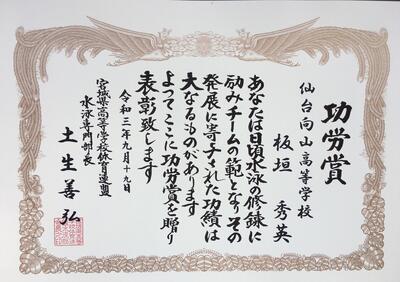 功労賞
仙台向山高等学校
板垣秀英
あなたは日頃水泳の修錬に
励みチームの範となりその
発展に寄与された功績は
大なるものがあります
よってここに功労賞を贈り
表彰致します
令和三年九月十九日
宮城県高等学校体育連盟
水泳専門部長
土生善弘